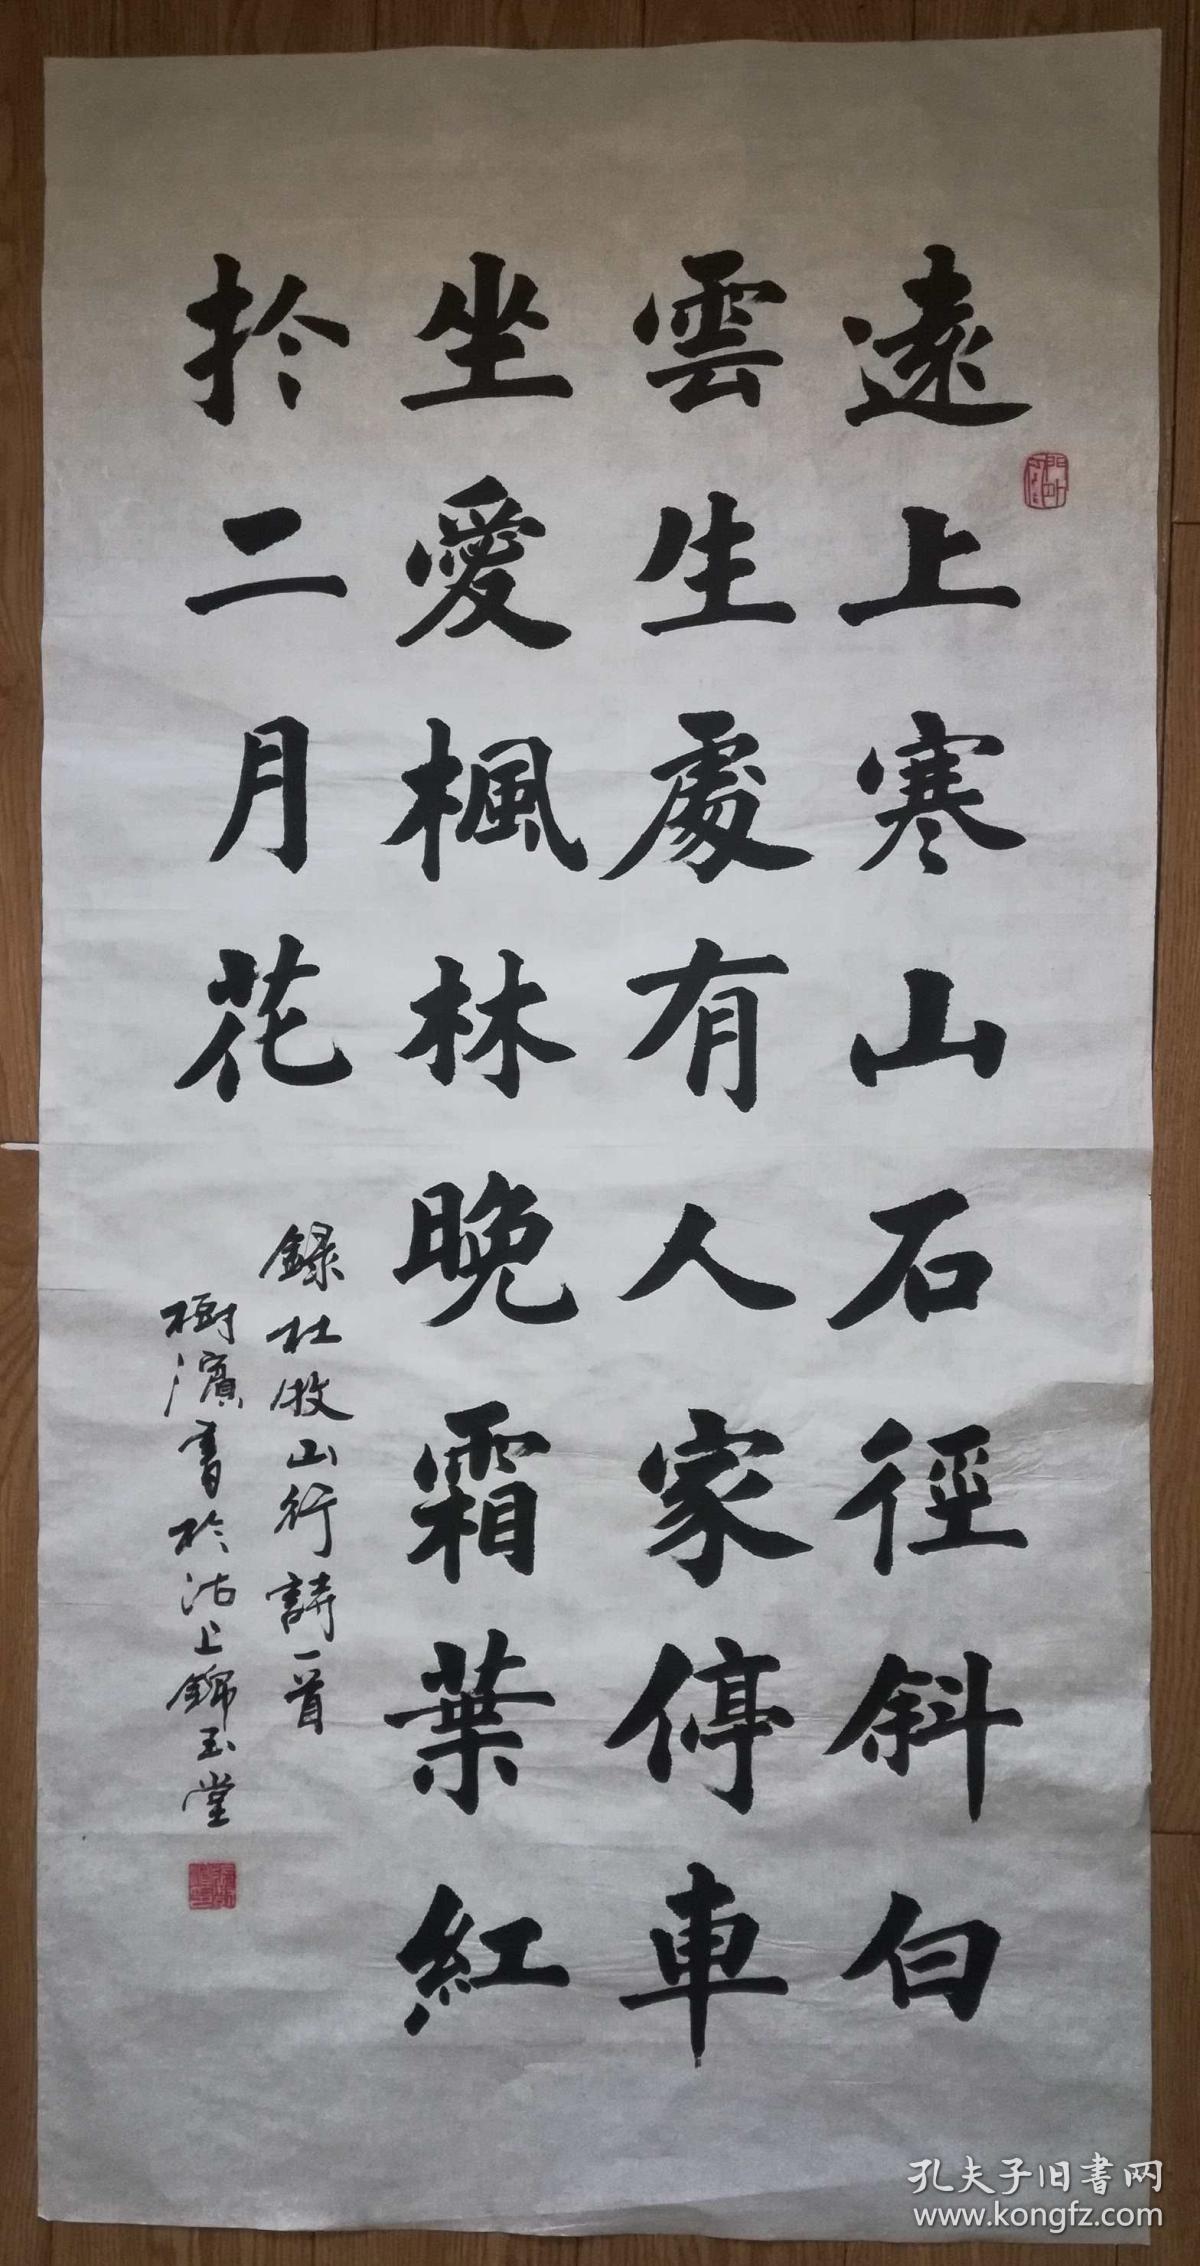 遠上寒山石徑斜白
雲生處有人家停車
坐愛楓林晚霜葉紅
於二月花
錄杜牧山行詩一首
樹濱書於沽上錦玉堂
孔夫子旧書网
www.kongfz.com